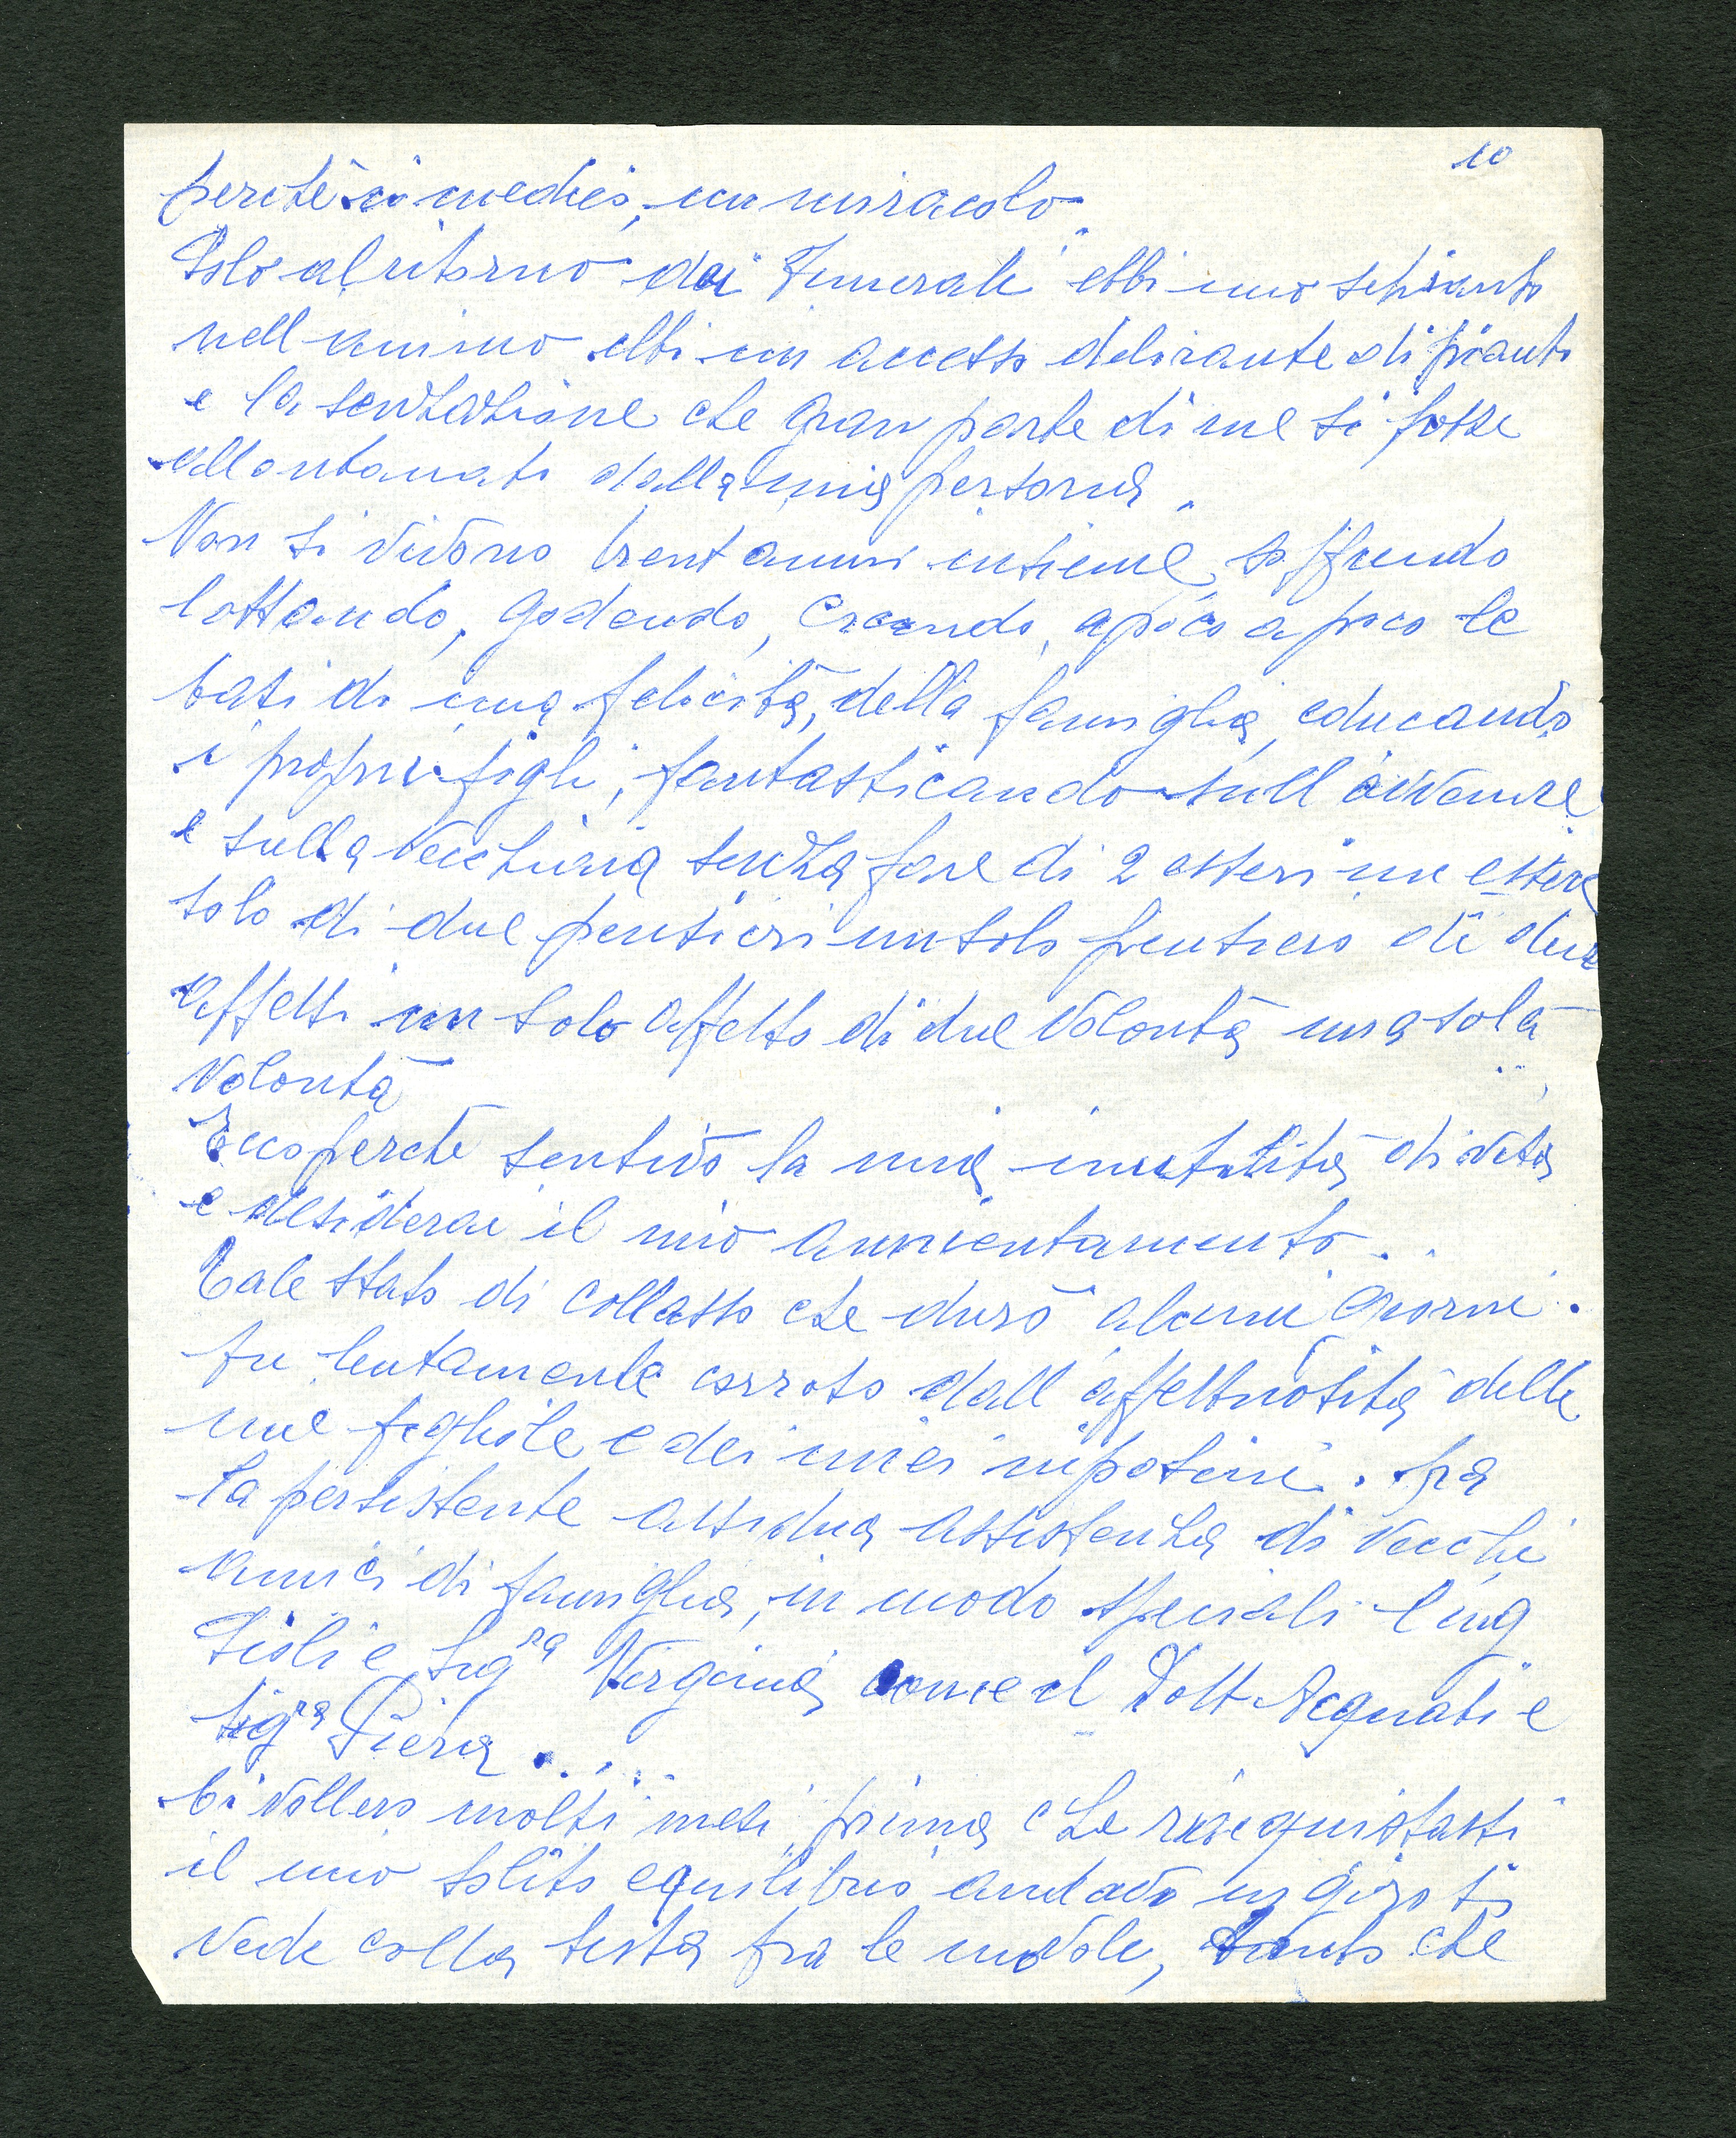 10
perchè ci medies, un miracolo
Solo al ritorno dai Funerali ebbi uno schianto
nell animo ebbi un accesso delirante di pianto
e la senzazione che gran parte di me si fosse
allontanata dalla mia persona.
Non si vivono trent anni insieme, soffrendo
lottando, godendo, creando, a poco a poco le
basi di una felicità, della famiglia, educando
i propri figli, fantasticando sull avvenire
e sulla vecchiaia senza fare di 2 esseri un essere
solo di due pensieri un solo pensiero di due
affetti un solo affetto di due volontà una sola
volontà
Ecco perchè sentivo la mia inutilità di vita
e desiderai il mio annientamento..
Tale stato di collasso che durò alcuni giorni.
fu lentamente corroso dall affettuosità delle
mie figliole e dei miei nipotini. fra
la persistente assidua assistenza di vecchi
amici di famiglia, in modo speciali l ing
Sigra Virginia come il Dott Acquati e
Sigra Piera....
Ci vollero molti mesi prima che riacquistassi
il mio solito equilibrio andavo in giro si
vede colla testa fra le nuvole, tanto che